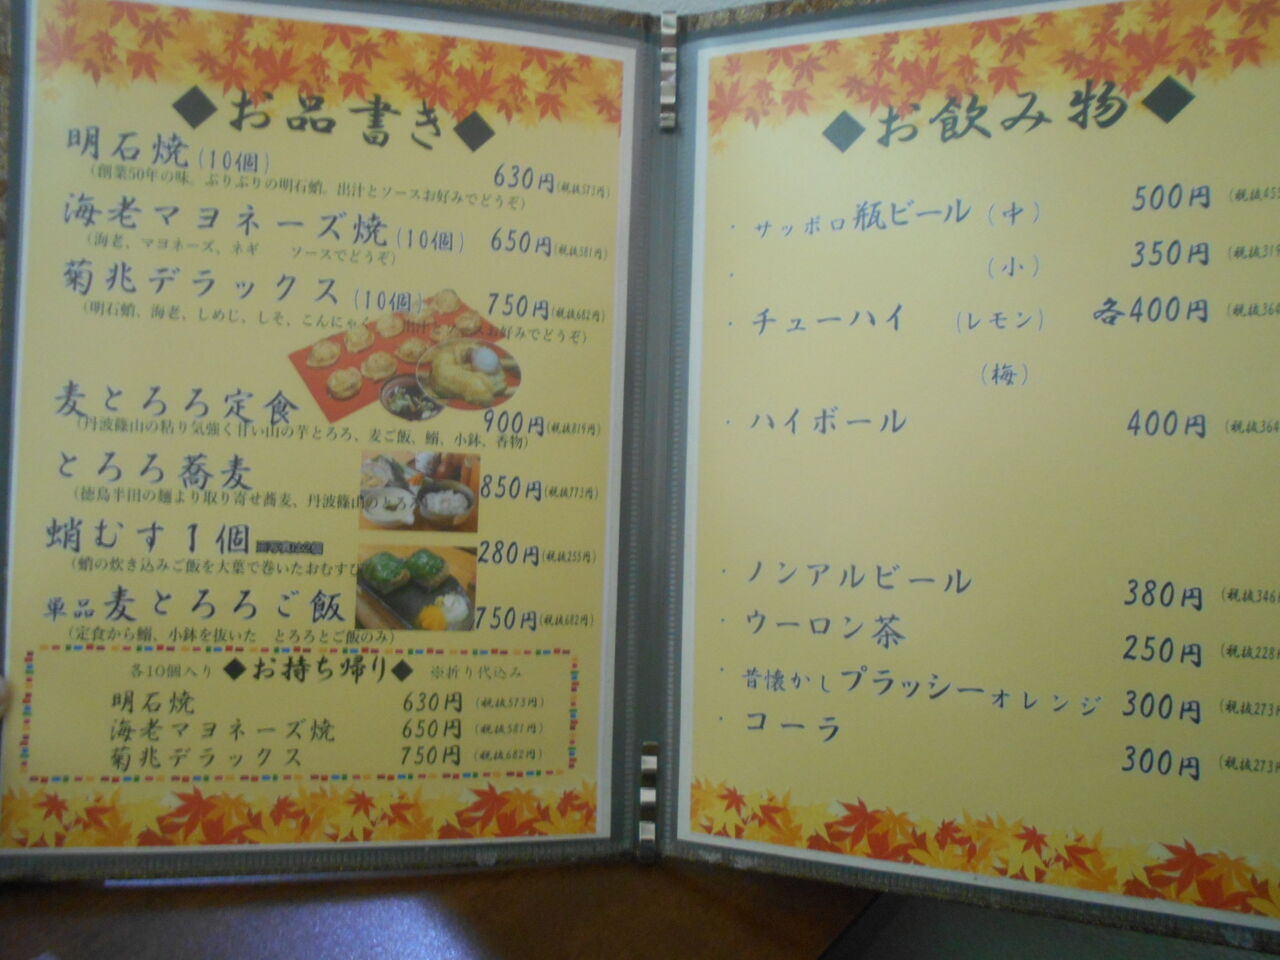 ◆お品書き◆
明石焼(10個) 630円(税抜573円)
(創業50年の味。ぷりぷりの明石蛸。出汁とソースお好みでどうぞ)
海老マヨネーズ焼(10個) 650円(税抜581円)
(海老、マヨネーズ、ネギ ソースでどうぞ)
菊兆デラックス(10個) 750円(税抜682円)
(明石蛸、海老、しめじ、しそ、こんにゃく 出汁とソースお好みでどうぞ)
麦とろろ定食 900円(税抜819円)
(丹波篠山の粘り気強く甘い山の芋とろろ、麦ご飯、鰯、小鉢、香物)
とろろ蕎麦 850円(税抜773円)
(徳島半田の麺より取り寄せ蕎麦、丹波篠山のとろろ
蛸むす1個 ※写真は2個 280円(税抜255円)
(蛸の炊き込みご飯を大葉で巻いたおむすび
単品麦とろろご飯 750円(税抜682円)
(定食から鰯、小鉢を抜いた とろろとご飯のみ)
各10個入り ◆お持ち帰り◆ ※折り代込み
明石焼 630円 (税抜573円)
海老マヨネーズ焼 650円 (税抜581円)
菊兆デラックス 750円 (税抜682円)
◆お飲み物◆
・サッポロ瓶ビール(中) 500円 (税抜455
・ (小) 350円 (税抜319
・チューハイ (レモン) 各400円 (税抜364
(梅)
・ハイボール 400円 (税抜364
・ノンアルビール 380円 (税抜346
・ウーロン茶 250円 (税抜228
・昔懐かしプラッシーオレンジ 300円 (税抜273
・コーラ 300円 (税抜273